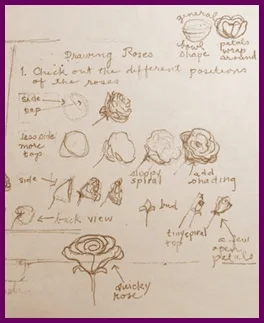 general
bowl
shape
petals
wrap
around
Drawing Roses
1. Check out the different positions
of the roses
side
top
less side
more
top
sloppy
spiral
add
shading
side
bud
tiny spiral
top
a few
open
petals
back view
quicky
rose